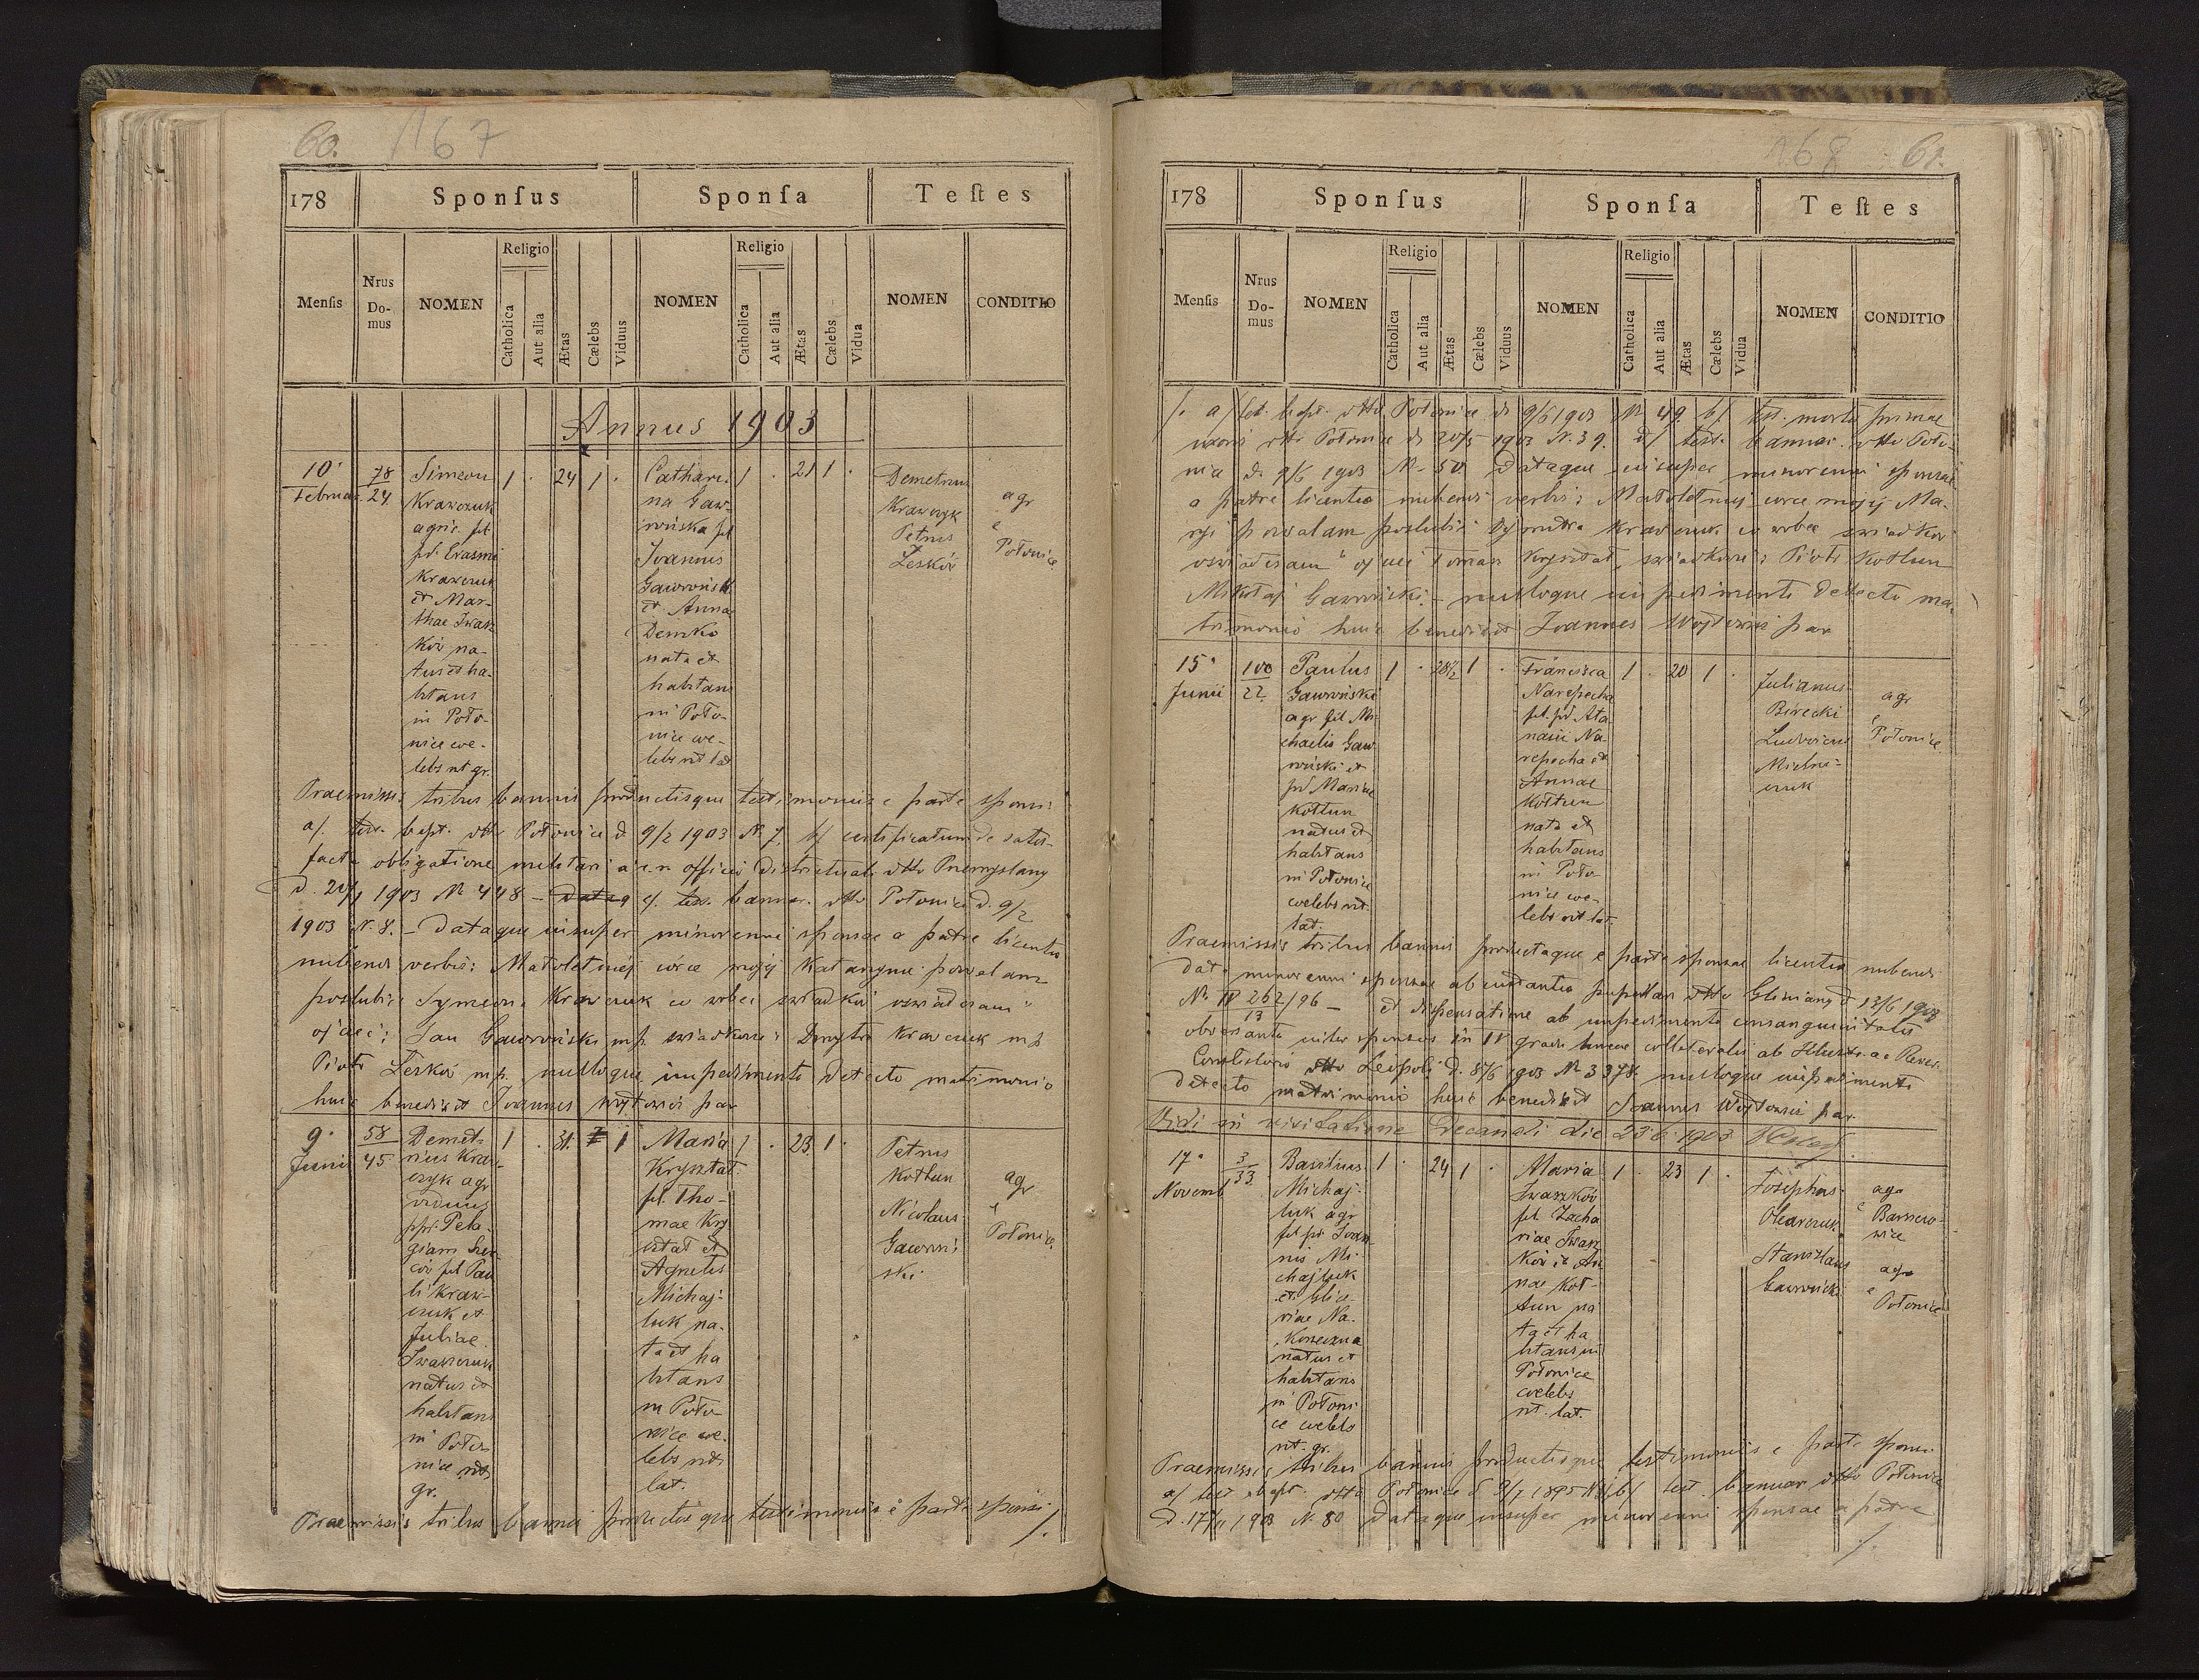 60. 167
178 Sponſus Sponſa Teſtes
Menſis Nrus Domus NOMEN Religio Catholica Aut alia Ætas Cælebs Viduus NOMEN Religio Catholica Aut alia Ætas Cælebs Vidua NOMEN CONDITIO
Annus 1903
10
Februar
78
24
Simeon
Krawczuk
agric. fil
pd. Erasmi
Krawczuk
et Mar-
thae Iwasz
ków na-
tus et ha-
bitans
in Poto-
nice coe-
lebs rit gr.
1 . 24 1 .
Cathari-
na Gaw-
rońska fil
Joannis
Gawroński
et Anna
Demko
nata et
habitans
in Poło-
nice coe-
lebs rit lat
1 . 21 1 .
Demetrius
Krawczyk
Petrus
Leśków
agr
e
Połonice
Praemissis tribus bannis productisque testimoniis e parte sponsi
a/. test. bapt. dtto Połonice d 9/2 1903 N. 7. b/ certificatum de satis-
facta obligatione militari a c. r. officio districtuali dtto Przemyslany
1903 N 448 – c/. test. bannor. dtto Połonice d. 9/2
1903 N. 8. – dataque insuper minorenni sponsae a patre licentia
nubendi verbis: Małoletniej córce mojej Katarzynie pozwalam
poślubić Symeona Krawczuk co wobec świadków oświadczam"
ojciec: Jan Gawroński mp. świadkowie: Dmytro Krawczuk mp
Piotr Leśków mp. nulloque impedimento detecto matrimonio
huic benedixit Joannes Wojtowicz par
9
Junii
58
45
Demet-
rius Kraw-
czyk agr
viduus
ppi. Pela-
giam
fil Pau
li Kraw-
czuk et
Juliae
Iwaszczuk
natus et
habitans
in Poło-
nice rit
gr.
1 . 31. 1
Maria
Kryształ
fil. Tho-
mae Kry
ształ et
Agnetis
Michaj-
luk na-
ta et ha
bitans
in Poło-
nice coe-
lebs rit
lat.
1 . 23 1 .
Petrus
Kotłun
Nicolaus
Gawroń
ski
agr
e
Połonice
Praemissis tribus bannis productisque testimoniis e parte sponsi
./.
168 61.
178 Sponſus Sponſa Teſtes
Menſis Nrus Domus NOMEN Religio Catholica Aut alia Ætas Cælebs Viduus NOMEN Religio Catholica Aut alia Ætas Cælebs Vidua NOMEN CONDITIO
/. a/ test. bapt. dtto Połonice d. 9/6 1903 N 49. b/ test. mortis primae
uxoris dtto Połonice d. 20/5 1903 N. 39. test. bannor. dtto Poło-
nice d. 9/6 1903 N. 50 dataque insuper minorenni sponsae
a patre licentia nubendi verbis: Małoletniej córce mojej Ma-
ryi pozwalam poślubić Dymitra Krawczuk co wobec świadków
oświadczam" ojciec Tomasz Kryształ, świadkowie: Piotr Kotłun
Mikołaj Gawroński – nulloque impedimento detecto ma-
trimonio huic benedixit Joannes Wojtowicz par
15
Junii
100
22
Paulus
Gawroński
agr fil. Mi
chaelis Gaw
roński et
pd Mariae
Kotłun
natus et
habitans
in Połonice
coelebs rit
lat.
1 . 28½ 1 .
Francisca
Narepecha
fil. pd Ata
nasii Na-
repecha et
Annae
Kotłun
nata et
habitans
in Poło
nice coe-
lebs rit lat
1 . 20 1 .
Julianus
Birecki
Ludovicus
Mielni-
czuk
agr
e
Połonice
Praemissis tribus bannis productaque e parte sponsae licentia nubendi
data minorenni sponsae ab instantia pupillari dtto Gliniany d 13/6 1903
N. IV 262/96 – et dispensatione ab impedimento consanguinitatis
13
obversante inter sponsos in IV gradu lineae collateralis ab Illustr. ac Rever.
Consistorio dtto Leopoli d. 8/6 1903 N 3378. nulloque impedimento
detecto matrimonio huic benedixit Joannes Wojtowicz par.
Vidi in visitatione decanali die 23/6 1903
17
Novemb
3
33
Basilius
Michaj-
luk agr
fil pd Joan
nis Mi-
chajluk
et Glice
riae Na-
koneczna
natus et
habitans
in Połoni
ce coelebs
rit. gr.
1 . 24 1 .
Maria
Iwaszków
fil Zacha
riae Iwasz
ków et An
nae Kot-
łun na
ta et ha
bitans in
Połonice
coelebs
rit. lat.
1 . 23 1 .
Josephus
Olearczuk
Stanislaus
Gawroński
agr
e
Barszczo-
wice
agr
e
Połonice
Praemissis tribus bannis productisque testimoniis e parte sponsi
a/ test bapt. dtto Połonice b/ test. bannor dtto Połonice
d. 17/11 1903 N. 80 dataque insuper minorenni sponsae a patre
./.